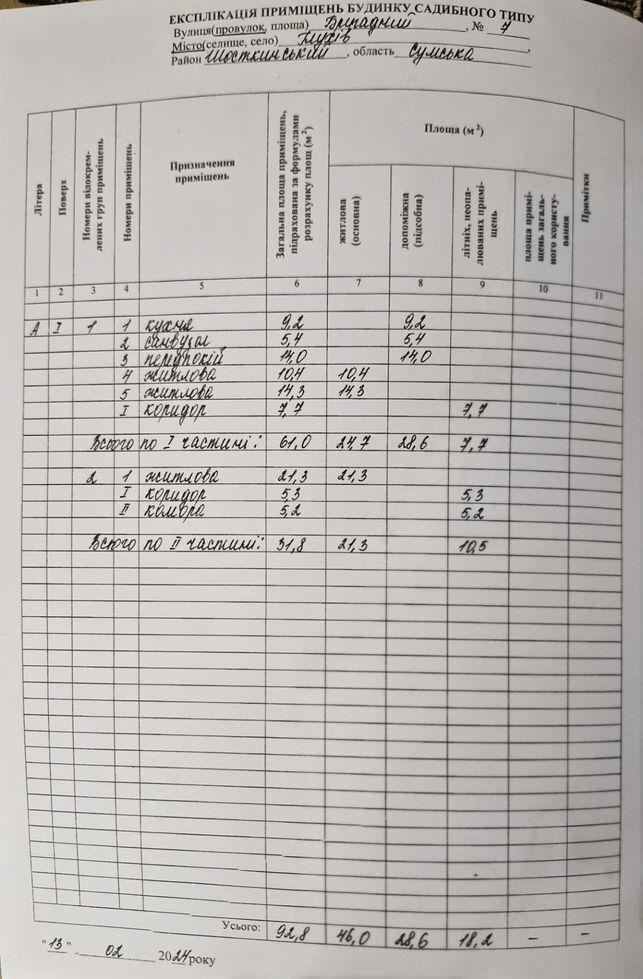 ЕКСПЛІКАЦІЯ ПРИМІЩЕНЬ БУДИНКУ САДИБНОГО ТИПУ
Вулиця(провулок, площа) Бригадний, № 7
Місто(селище, село) Глухів,
Район Шосткинський, область Сумська
Літера Поверх Номери відокрем-лених груп приміщень Номери приміщень Призначення приміщень Загальна площа приміщень, підрахована за формулами розрахунку площ (м²) Площа (м²) Примітки
житлова (основна) допоміжна (підсобна) літніх, неопа-люваних примі-щень площа примі-щень загаль-ного користу-вання
1 2 3 4 5 6 7 8 9 10 11
А І 1 1 кухня 9,2 9,2
2 санвузол 5,4 5,4
3 передпокій 14,0 14,0
4 житлова 10,4 10,4
5 житлова 14,3 14,3
І коридор 7,7 7,7
Всього по І частині: 61,0 24,7 28,6 7,7
2 1 житлова 21,3 21,3
І коридор 5,3 5,3
ІІ комора 5,2 5,2
Всього по ІІ частині: 31,8 21,3 10,5
Усього: 92,8 46,0 28,6 18,2 – –
"13" 02 2024 року